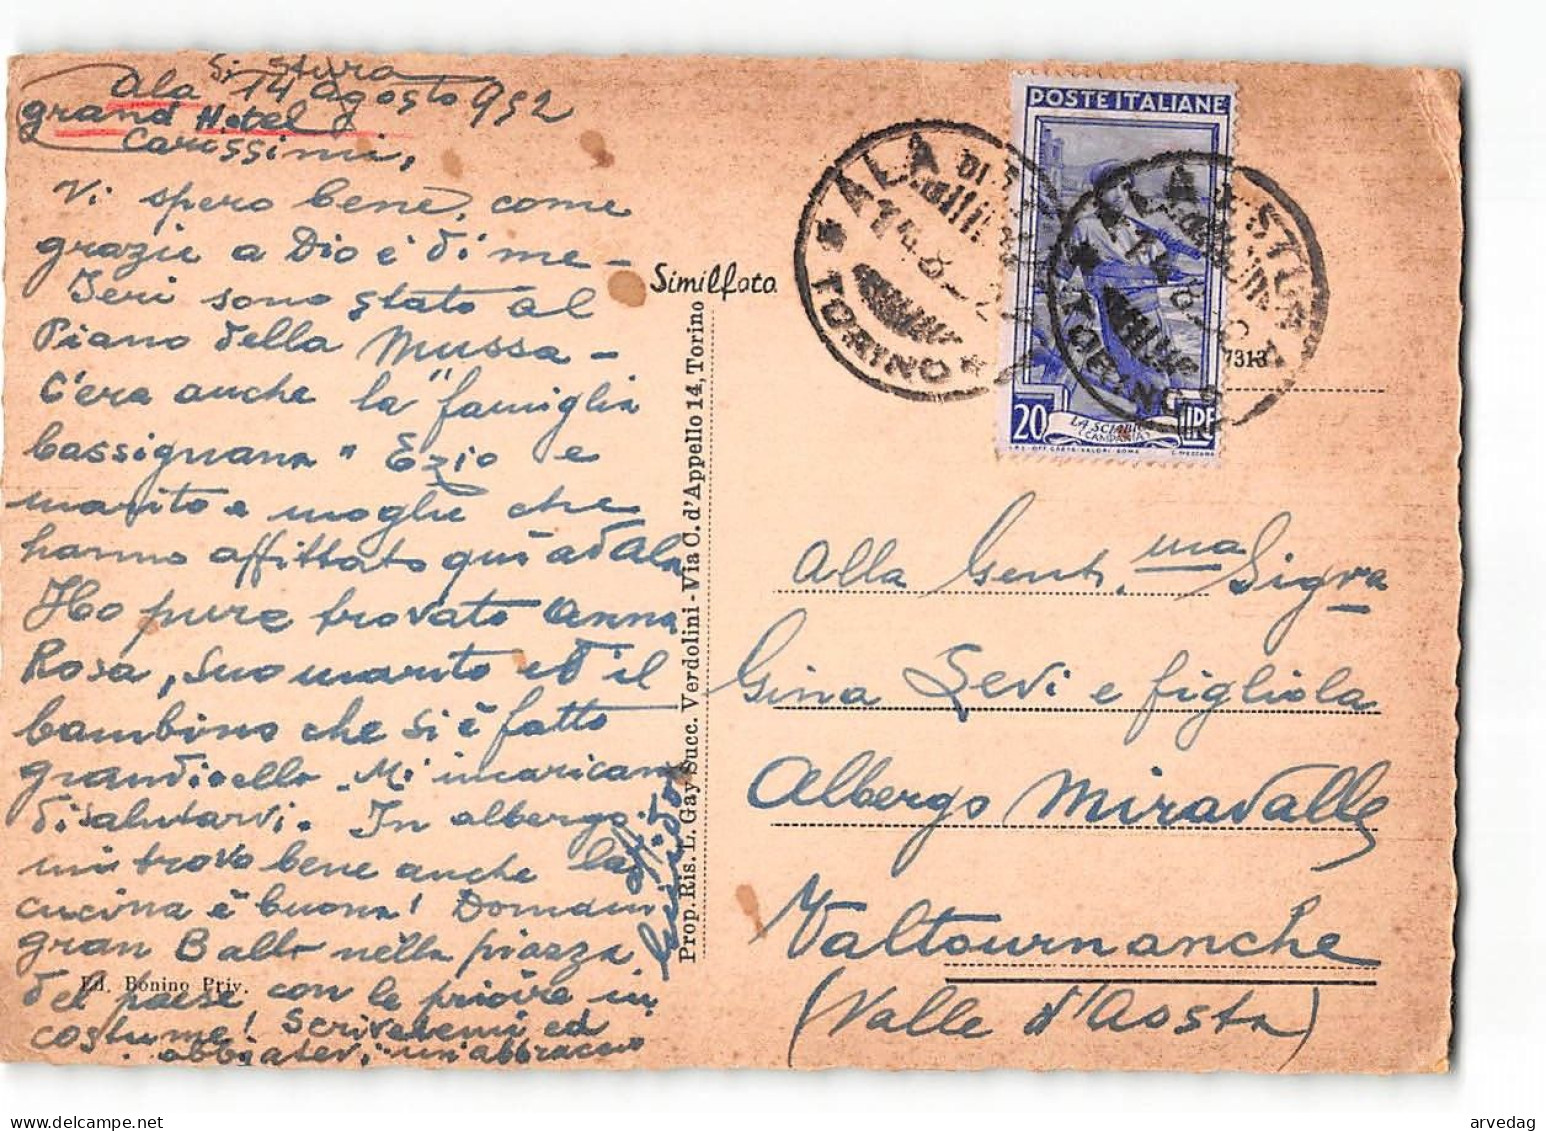 di Stura
Ala 14 agosto 952
grand Hotel
Carissimi,
Vi spero bene, come
grazie a Dio è di me -
Ieri sono stato al
Piano della Mussa -
C'era anche la "famiglia
bassignana" Ezio e
marito e moglie che
hanno affittato quì ad Ala
Ho pure trovato Anna
Rosa, suo marito ed il
bambino che si è fatto
grandicello. Mi incaricano
di salutarvi. In albergo
mi trovo bene anche la
cucina è buona! Domani
gran Ballo nella piazza
del paese con le priore in
costume! Scrivetemi ed
abbiatevi un abbraccio
Ed. Bonino Priv.
Prop. Ris. L. Gay Succ. Verdolini - Via C. d'Appello 14, Torino
Similfoto
POSTE ITALIANE
20 LIRE
LA SCIABICA
(CAMPANIA)
ALA DI STURA
TORINO
ALA DI STURA
TORINO
7313
Alla Gent.ma Sigra
Gina Levi e figliola
Albergo Miravalle
Valtournanche
(Valle d'Aosta)
arvedag